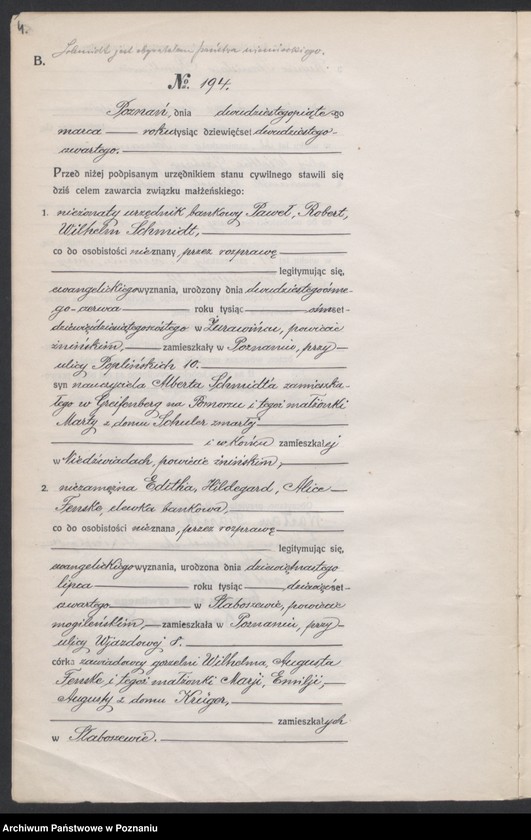 4.
Schmidt jest obywatelem państwa niemieckiego.
B.
№ 194.
Poznań, dnia dwudziestegopiątego
marca roku tysiąc dziewięćset dwudziestego-
czwartego.
Przed niżej podpisanym urzędnikiem stanu cywilnego stawili się
dziś celem zawarcia związku małżeńskiego:
1. nieżonaty urzędnik bankowy Paweł, Robert,
Wilhelm Schmidt,
co do osobistości nieznany, przez rozprawę
legitymując się,
ewangelickiego wyznania, urodzony dnia dwudziestegoósme-
go czerwca roku tysiąc ośmset-
dziewięćdziesiątegoszóstego w Żurawińcu, powiecie
żnińskim, zamieszkały w Poznaniu, przy
ulicy Poplińskich 10.
syn nauczyciela Alberta Schmidta zamieszka-
łego w Greifenberg na Pomorzu i tegoż małżonki
Marty z domu Schuler zmarłej
i w końcu zamieszkałej
w Niedźwiadach, powiecie żnińskim,
2. niezamężna Editha, Hildegard, Alice
Fenske, elewka bankowa,
co do osobistości nieznana, przez rozprawę
legitymując się,
ewangelickiego wyznania, urodzona dnia dziewiętnastego
lipca roku tysiąc dziewięćset-
czwartego w Słaboszewie, powiecie
mogileńskim, zamieszkała w Poznaniu, przy
ulicy Wjazdowej 8.
córka zawiadowcy gorzelni Wilhelma, Augusta
Fenske i tegoż małżonki Marji, Emilji,
Augusty z domu Krüger,
zamieszkałych
w Słaboszewie.
Archiwum Państwowe w Poznaniu